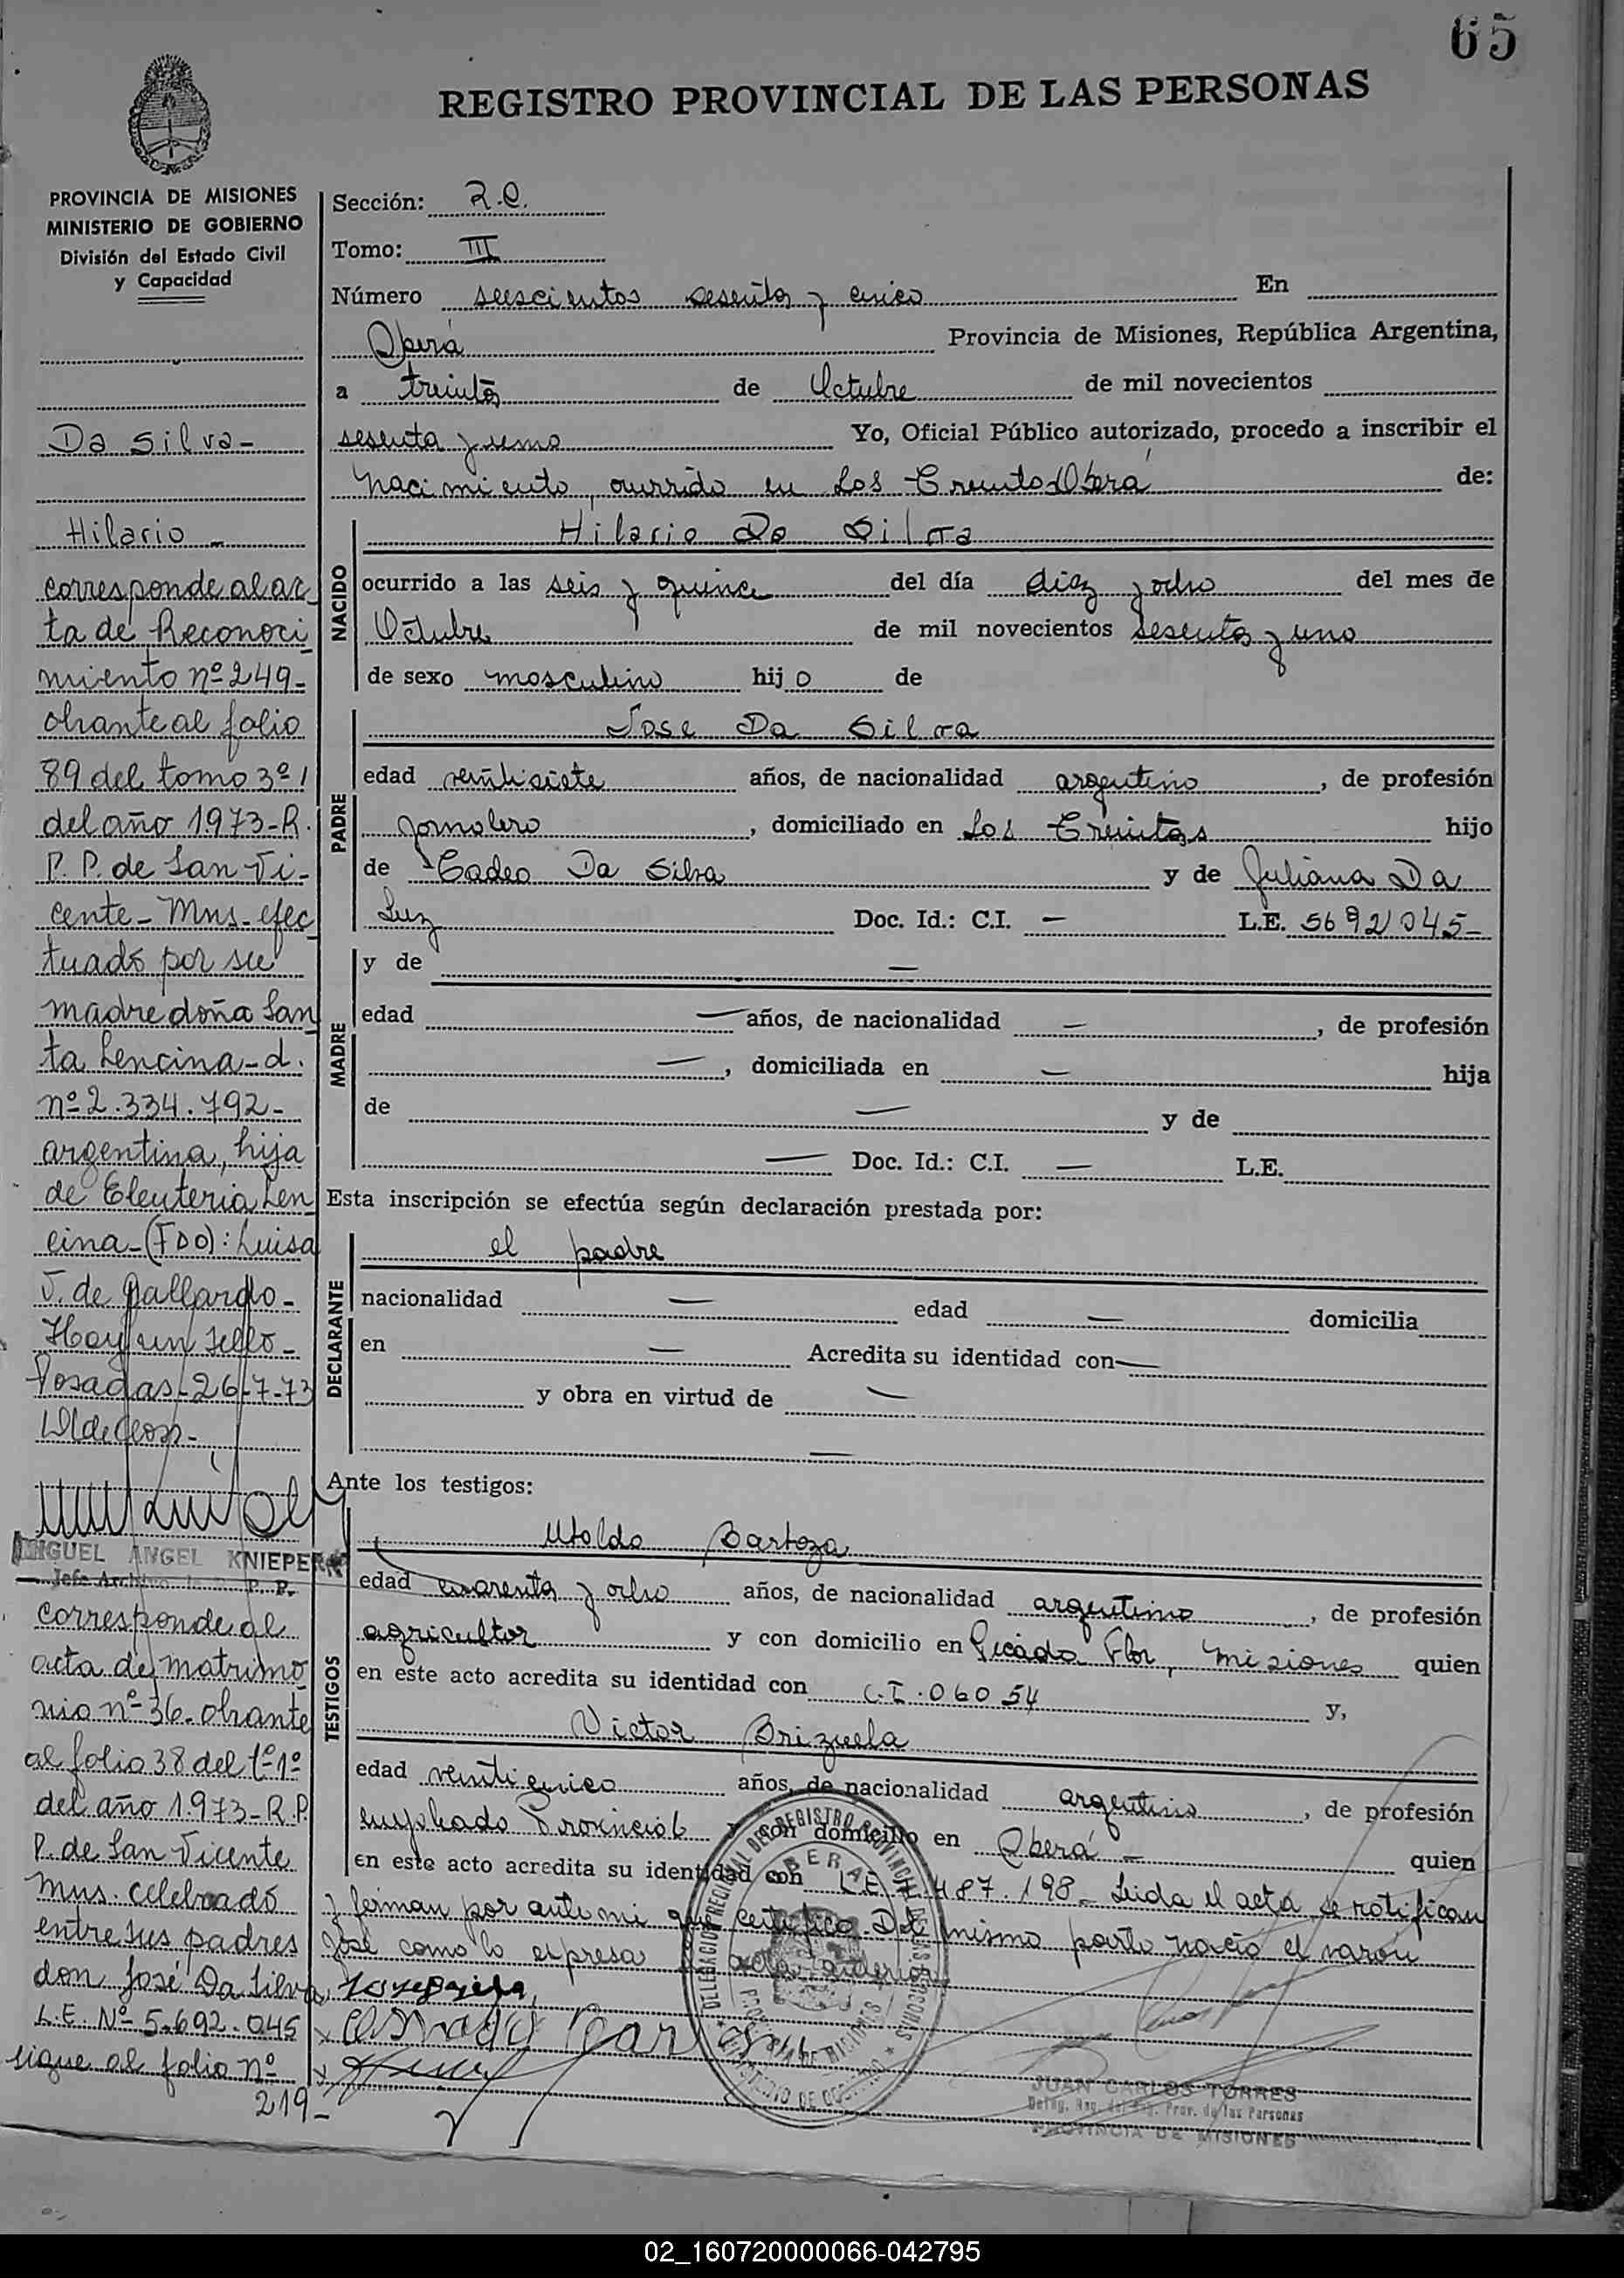 65
REGISTRO PROVINCIAL DE LAS PERSONAS
PROVINCIA DE MISIONES
MINISTERIO DE GOBIERNO
División del Estado Civil
y Capacidad
Da Silva-
Hilario -
corresponde al ac
ta de Reconoci
miento nº 249-
obrante al folio
89 del tomo 3º
del año 1973-R.
P. P. de San Vi-
cente- Mns- efec
tuado por su
madre doña San
ta Lencina-d.
nº 2.334.792-
argentina, hija
de Eleuteria Len
cina-(FDO): Luisa
J. de Gallardo-
Hay un sello-
Posadas-26-7-73
MIGUEL ANGEL KNIEPER
Jefe Archivo R. P. P.
corresponde al
acta de matrimo
nio nº 36-obrante
al folio 38 del tº 1º
del año 1.973-R.P.
P. de San Vicente
Mns. celebrado
entre sus padres
don José Da Silva
L.E. Nº 5.692.045
sigue al folio nº
219-
Sección: 2.a.
Tomo: III
Número seiscientos sesenta y cinco En
Oberá Provincia de Misiones, República Argentina,
a treinta de Octubre de mil novecientos
sesenta y uno Yo, Oficial Público autorizado, procedo a inscribir el
nacimiento, ocurrido en Los Oberá de:
NACIDO
Hilario Da Silva
ocurrido a las seis y quince del día diez y ocho del mes de
Octubre de mil novecientos sesenta y uno
de sexo masculino hijo de
PADRE
Jose Da Silva
edad veintisiete años, de nacionalidad argentino, de profesión
jornalero, domiciliado en Los hijo
de Tadeo Da Silva y de Juliana Da
Luz Doc. Id.: C.I. — L.E. 5692045-
MADRE
y de —
edad — años, de nacionalidad —, de profesión
—, domiciliada en — hija
de — y de
— Doc. Id.: C.I. — L.E.
Esta inscripción se efectúa según declaración prestada por:
DECLARANTE
el padre
nacionalidad — edad — domicilia
en — Acredita su identidad con —
y obra en virtud de —
—
Ante los testigos:
TESTIGOS
Bartoza
edad cuarenta y ocho años, de nacionalidad argentino, de profesión
agricultor y con domicilio en Picada Flor, Misiones quien
en este acto acredita su identidad con C.I. 06054 y,
Victor Brizuela
edad veinticinco años, de nacionalidad argentino, de profesión
empleado Provincial y con domicilio en Oberá - quien
en este acto acredita su identidad con L.E. 487.198- Leida el acta se notifican
y firman por ante mi que certifico Del mismo parto nació el varón
José como lo expresa acta anterior
DELEGACION REGIONAL DEL REGISTRO PROVINCIAL DE LAS PERSONAS
OBERA
PROVINCIA DE MISIONES
MINISTERIO DE GOBIERNO
JUAN CARLOS TORRES
Deleg. Reg. del Reg. Prov. de las Personas
PROVINCIA DE MISIONES
02_160720000066-042795